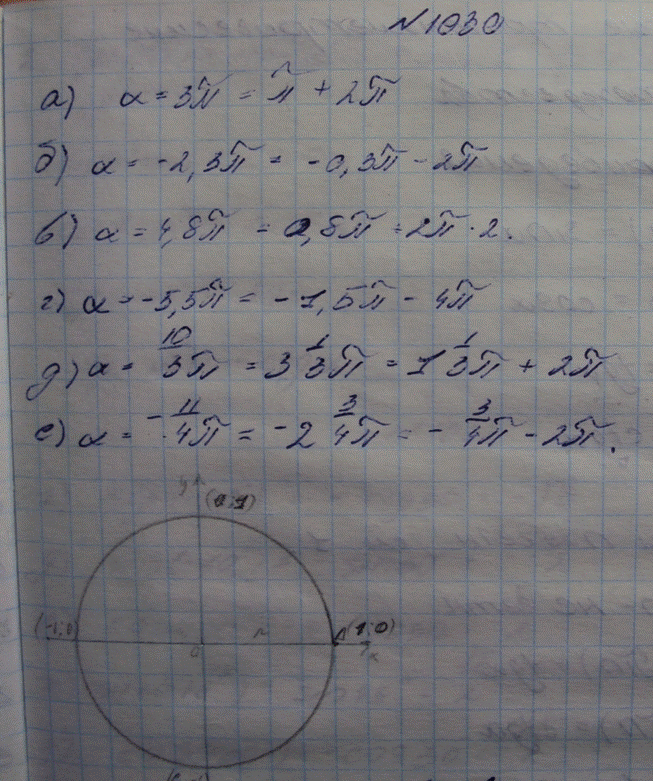 №1030
а) α = 3π = π + 2π
б) α = -2,3π = -0,3π - 2π
в) α = 4,8π = 0,8π + 2π · 2.
г) α = -5,5π = -1,5π - 4π
д) α = 10/3 π = 3 1/3 π = 1 1/3 π + 2π
е) α = -11/4 π = -2 3/4 π = -3/4 π - 2π.
y
(0;1)
(-1;0)
(1;0)
0
x